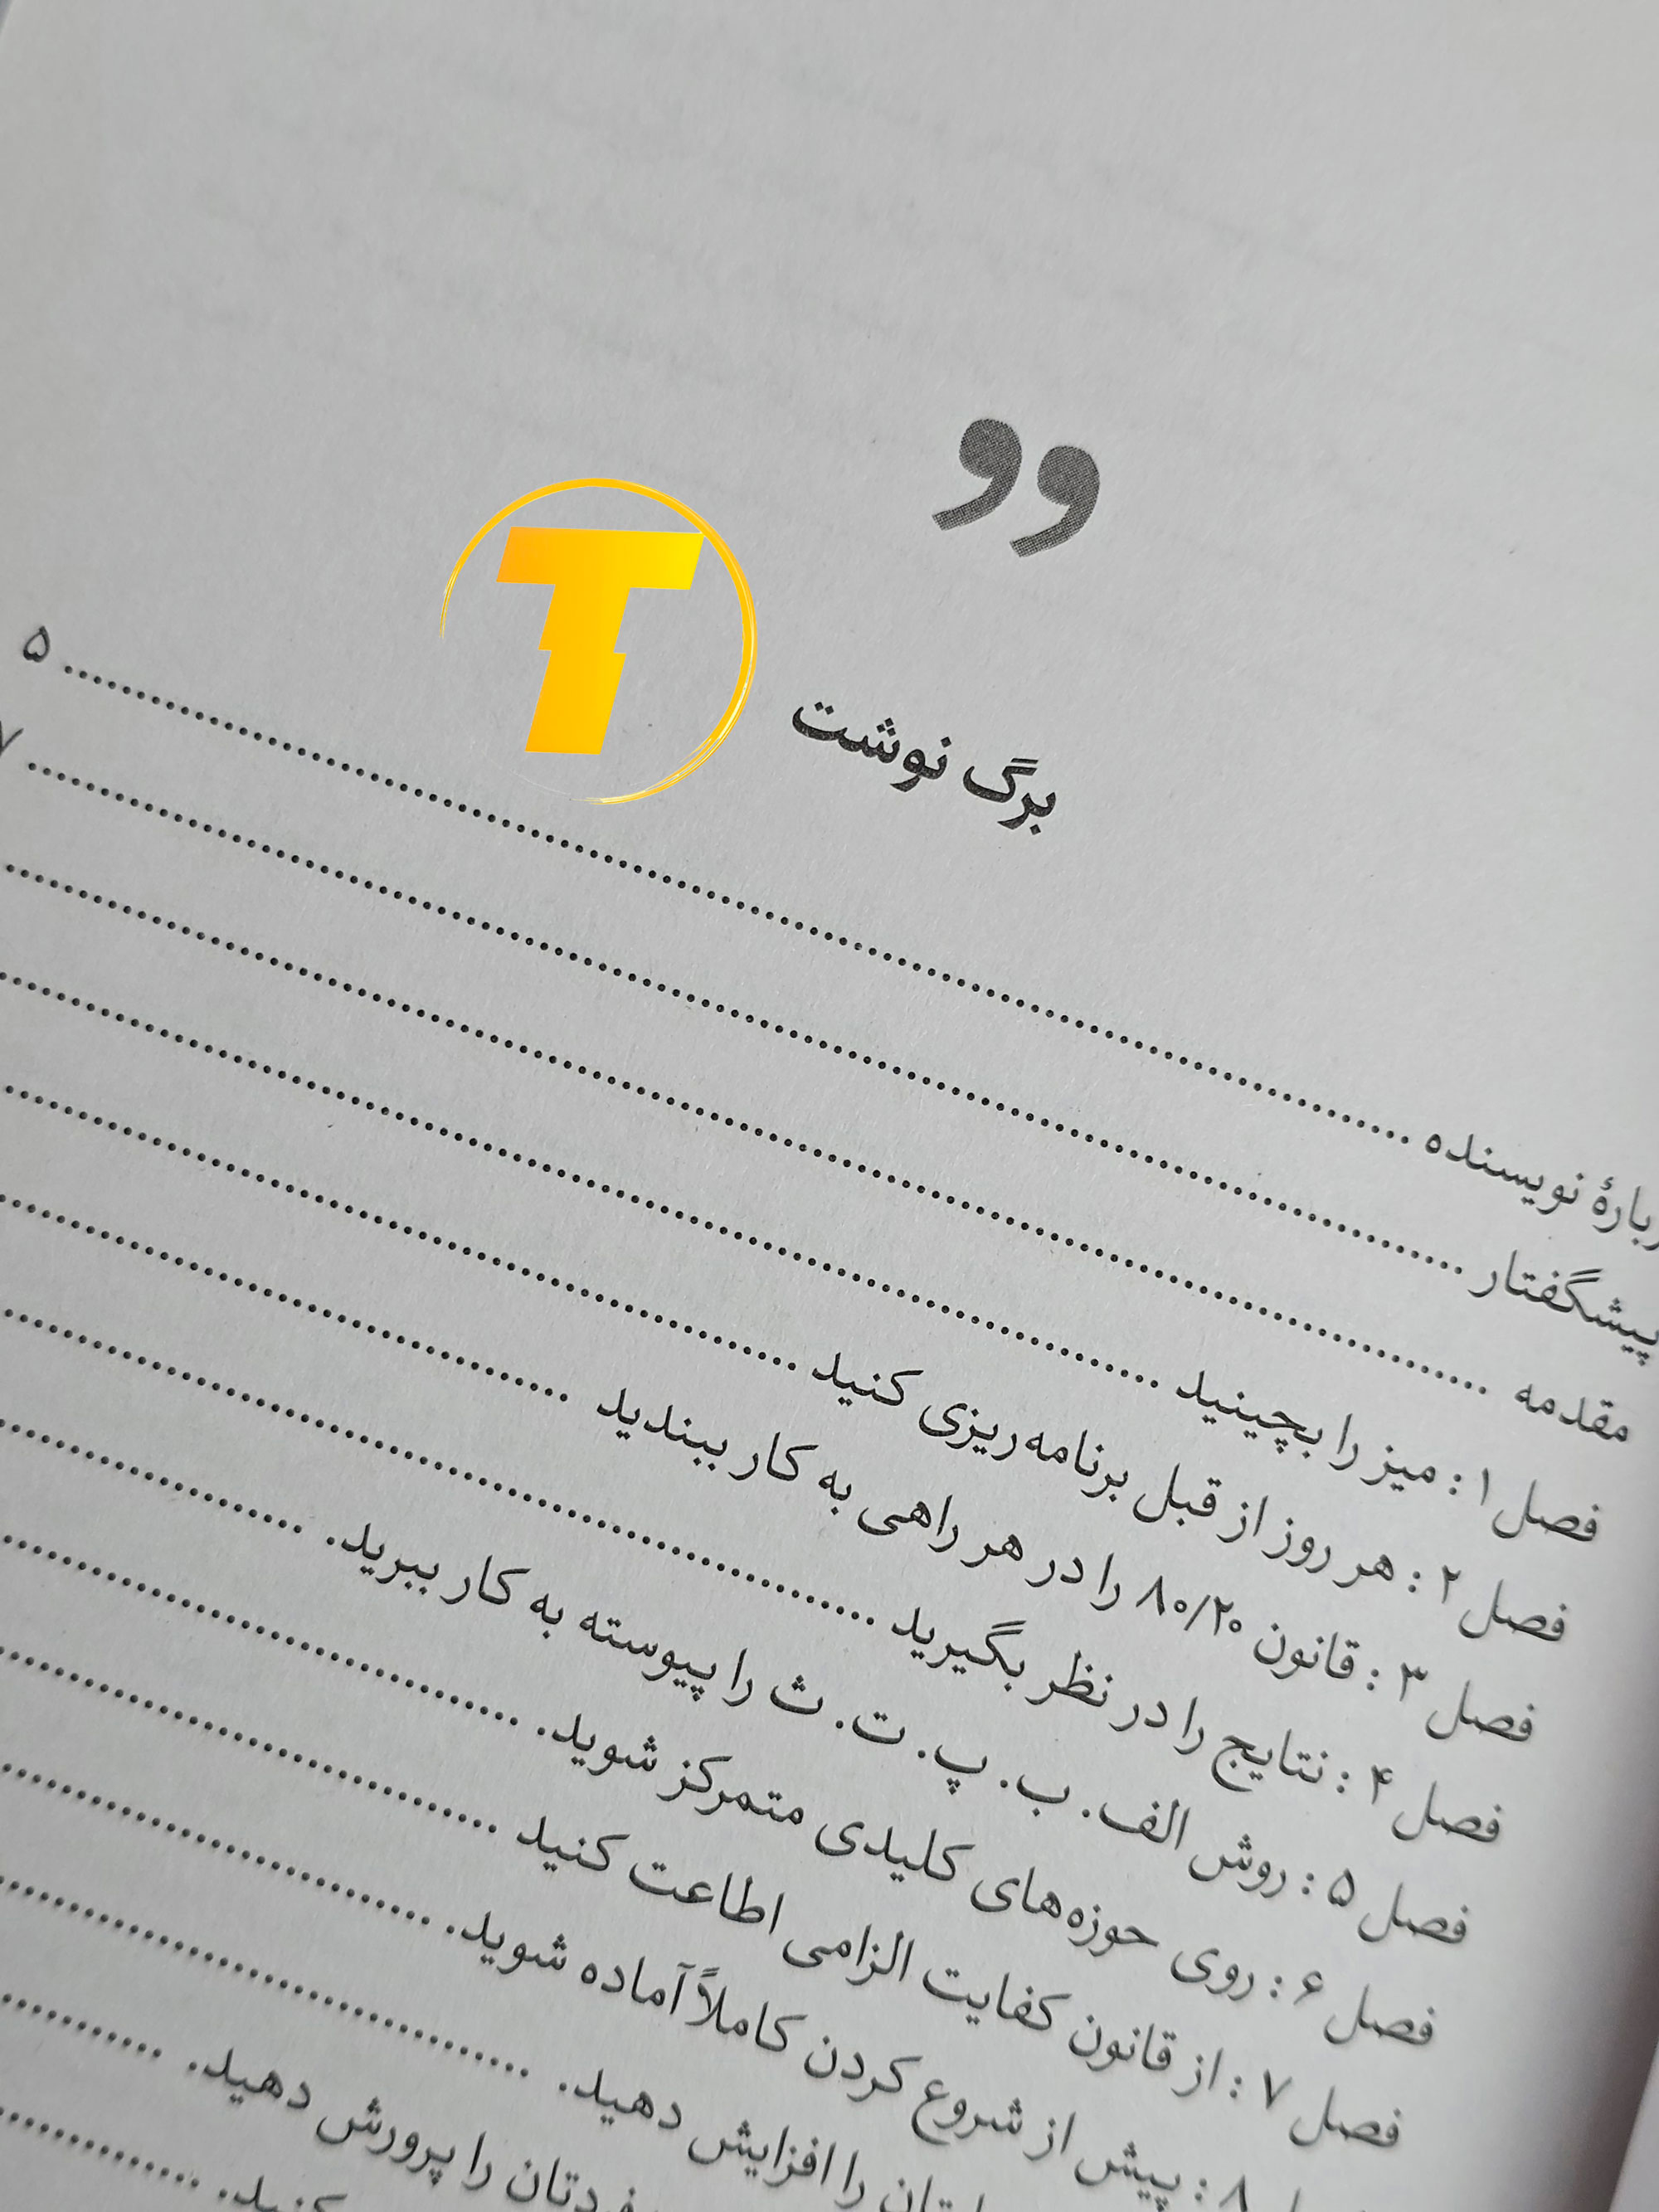 T
برگ نوشت
نویسنده ........ ۵
پیشگفتار ........ ۷
مقدمه ........
فصل ۱: میز را بچینید ........
فصل ۲: هر روز از قبل برنامه‌ریزی کنید ........
فصل ۳: قانون ۸۰/۲۰ را در هر راهی به کار ببندید ........
فصل ۴: نتایج را در نظر بگیرید ........
فصل ۵: روش الف. ب. پ. ت. ث را پیوسته به کار ببرید. ........
فصل ۶: روی حوزه‌های کلیدی متمرکز شوید. ........
فصل ۷: از قانون کفایت الزامی اطاعت کنید ........
۸: پیش از شروع کردن کاملاً آماده شوید. ........
را افزایش دهید. ........
را پرورش دهید. ........
کنید. ........